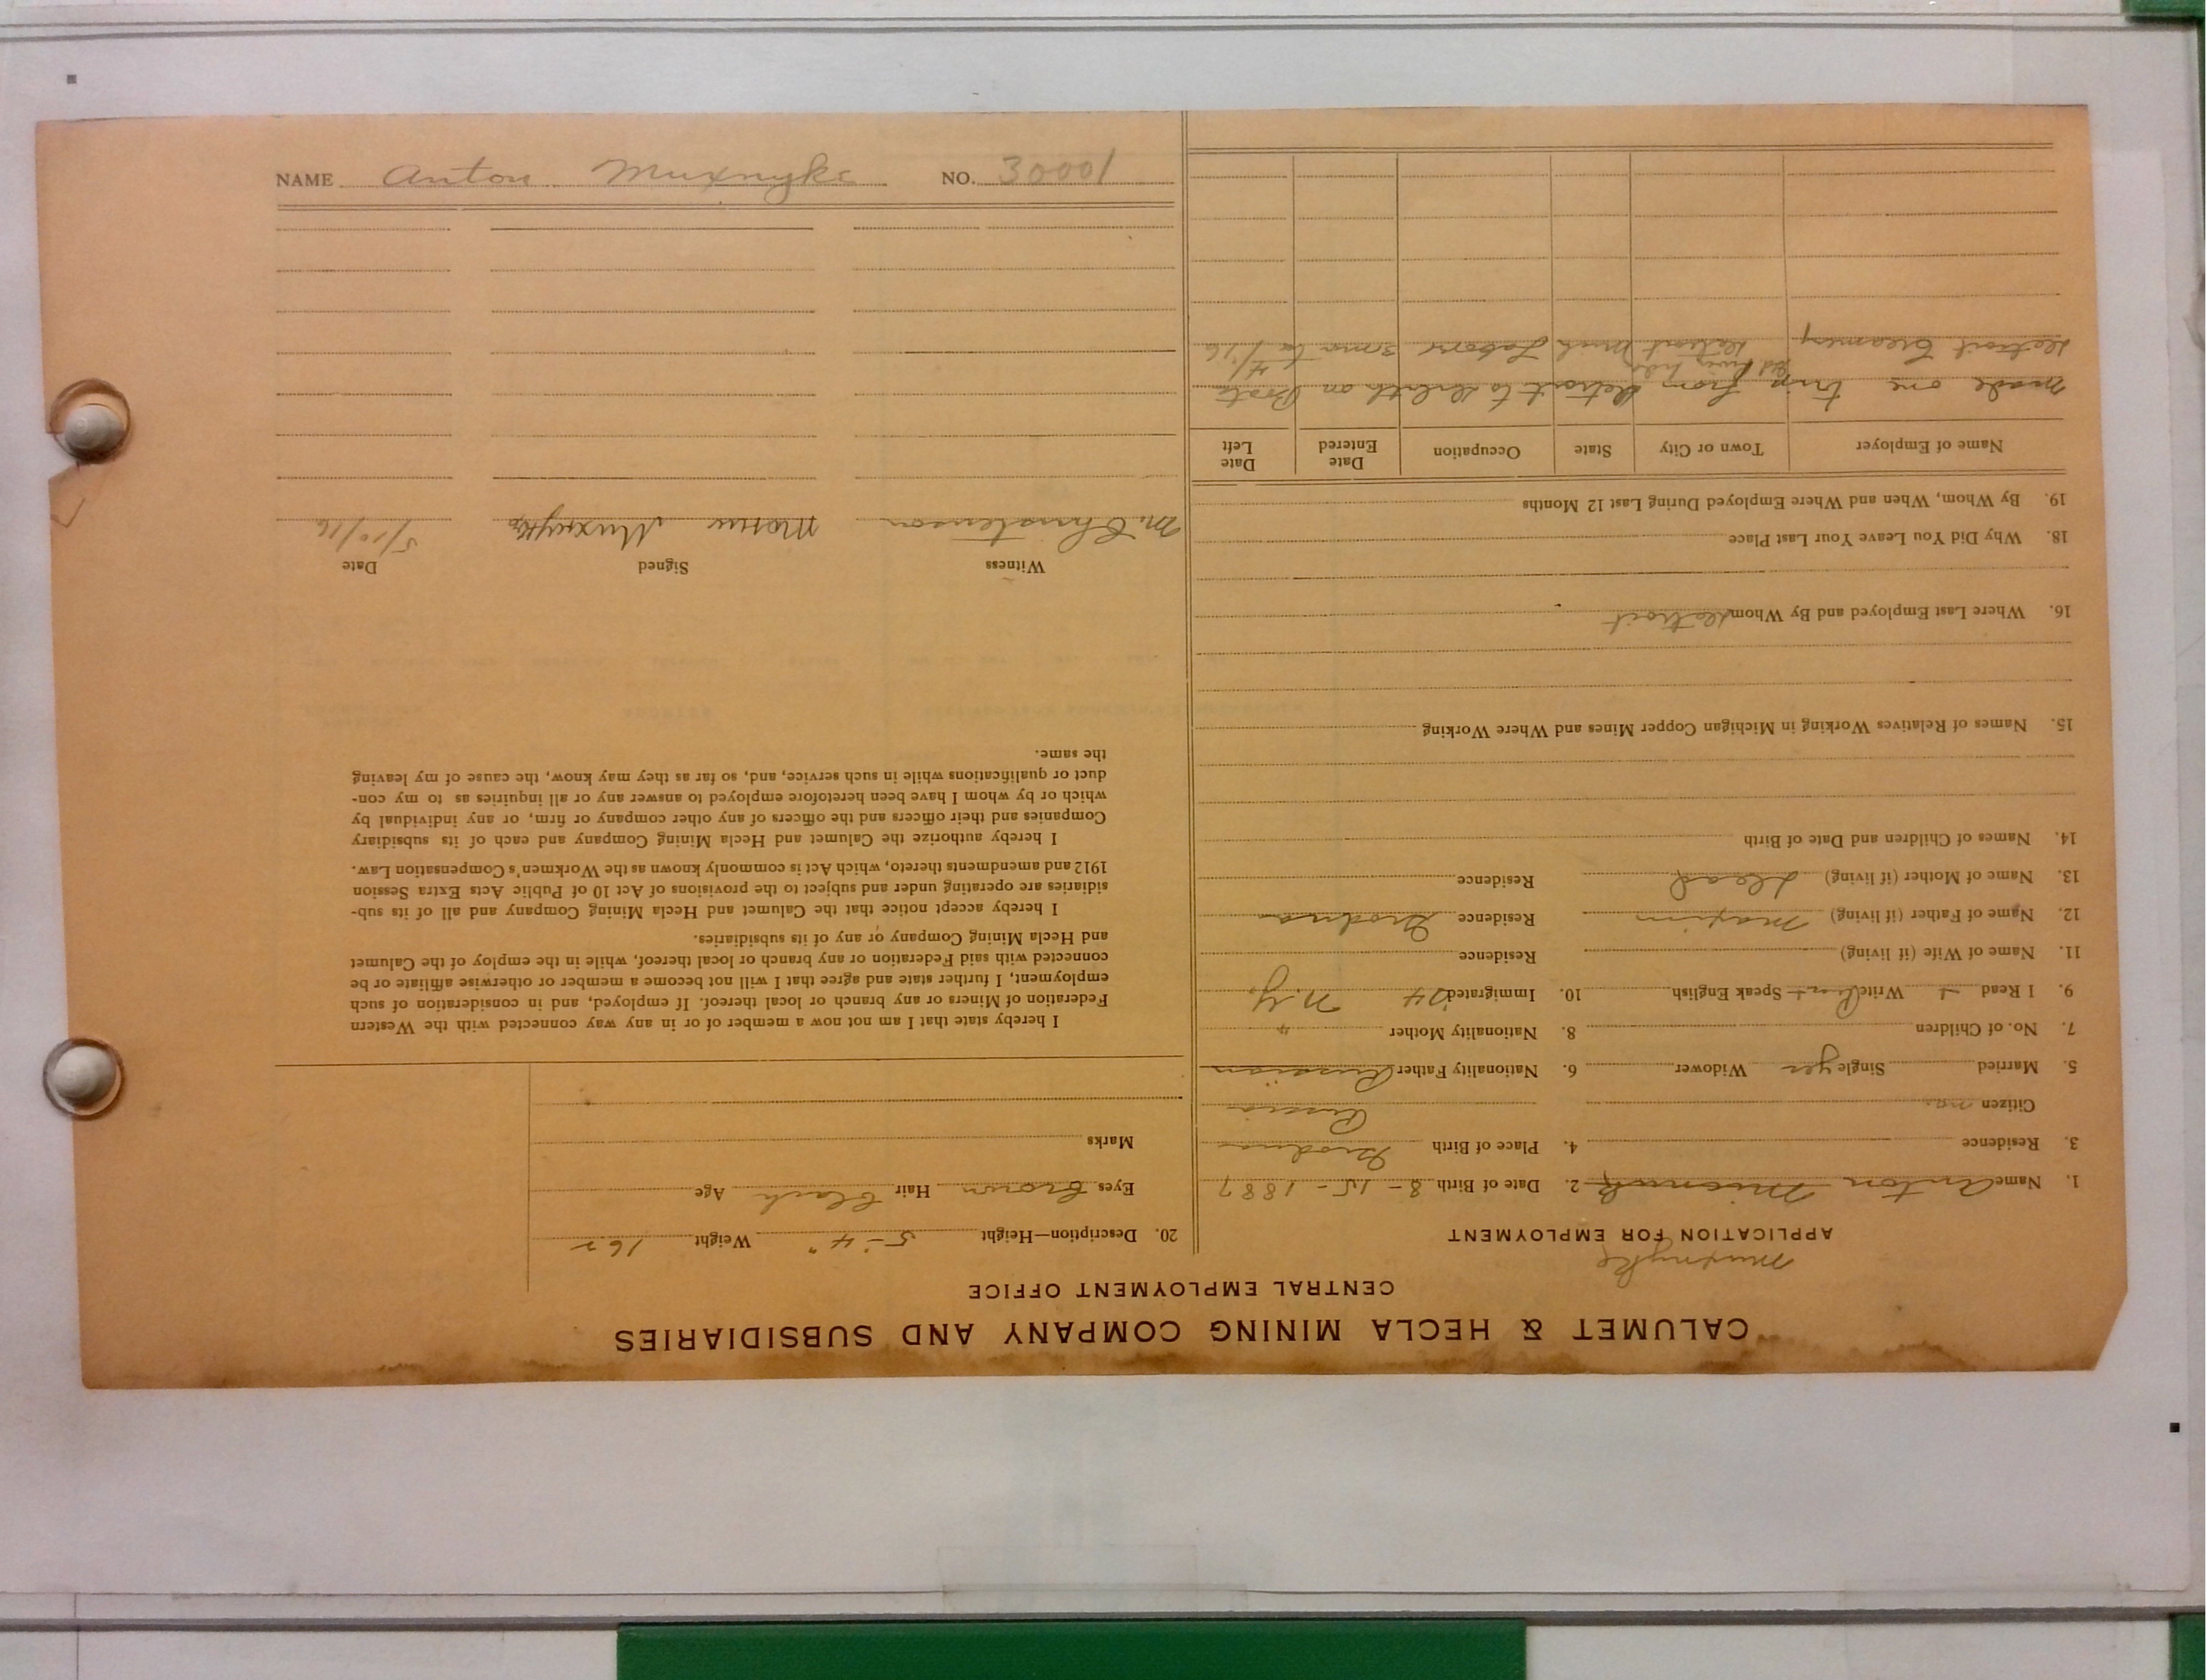 CALUMET & HECLA MINING COMPANY AND SUBSIDIARIES
CENTRAL EMPLOYMENT OFFICE
Muxnyke
APPLICATION FOR EMPLOYMENT
1. Name Anton 2. Date of Birth 8-15-1887
3. Residence 4. Place of Birth Grodno
Citizen no. Russia
5. Married Single yes Widower 6. Nationality Father Russian
7. No. of Children 8. Nationality Mother "
9. I Read + Write Speak English + 10. Immigrated N.Y.
11. Name of Wife (if living) Residence
12. Name of Father (if living) Maxim Residence Grodno
13. Name of Mother (if living) Dead Residence
14. Names of Children and Date of Birth
15. Names of Relatives Working in Michigan Copper Mines and Where Working
16. Where Last Employed and By Whom Detroit
18. Why Did You Leave Your Last Place
19. By Whom, When and Where Employed During Last 12 Months
Name of Employer Town or City State Occupation Date Entered Date Left
Made one trip from Detroit to Duluth on Boat
Detroit Creamery Detroit Mich Labor 3 mo 4/16
20. Description—Height 5-4" Weight 162
Eyes Brown Hair Black Age
Marks
I hereby state that I am not now a member of or in any way connected with the Western
Federation of Miners or any branch or local thereof. If employed, and in consideration of such
employment, I further state and agree that I will not become a member or otherwise affiliate or be
connected with said Federation or any branch or local thereof, while in the employ of the Calumet
and Hecla Mining Company or any of its subsidiaries.
I hereby accept notice that the Calumet and Hecla Mining Company and all of its sub-
sidiaries are operating under and subject to the provisions of Act 10 of Public Acts Extra Session
1912 and amendments thereto, which Act is commonly known as the Workmen's Compensation Law.
I hereby authorize the Calumet and Hecla Mining Company and each of its subsidiary
Companies and their officers and the officers of any other company or firm, or any individual by
which or by whom I have been heretofore employed to answer any or all inquiries as to my con-
duct or qualifications while in such service, and, so far as they may know, the cause of my leaving
the same.
Witness Signed Date
M. Christenson Muxnyke 5/10/16
NAME Anton Muxnyke NO. 30001